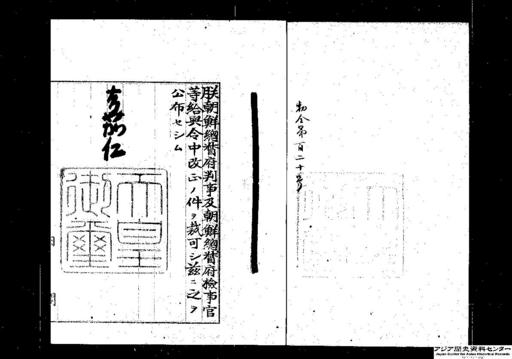 勅令第百二十号
朕朝鮮總督府判事及朝鮮總督府檢事官
等給與令中改正ノ件ヲ裁可シ茲ニ之ヲ
公布セシム
嘉仁
天皇
御璽
アジア歴史資料センター
Japan Center for Asian Historical Records